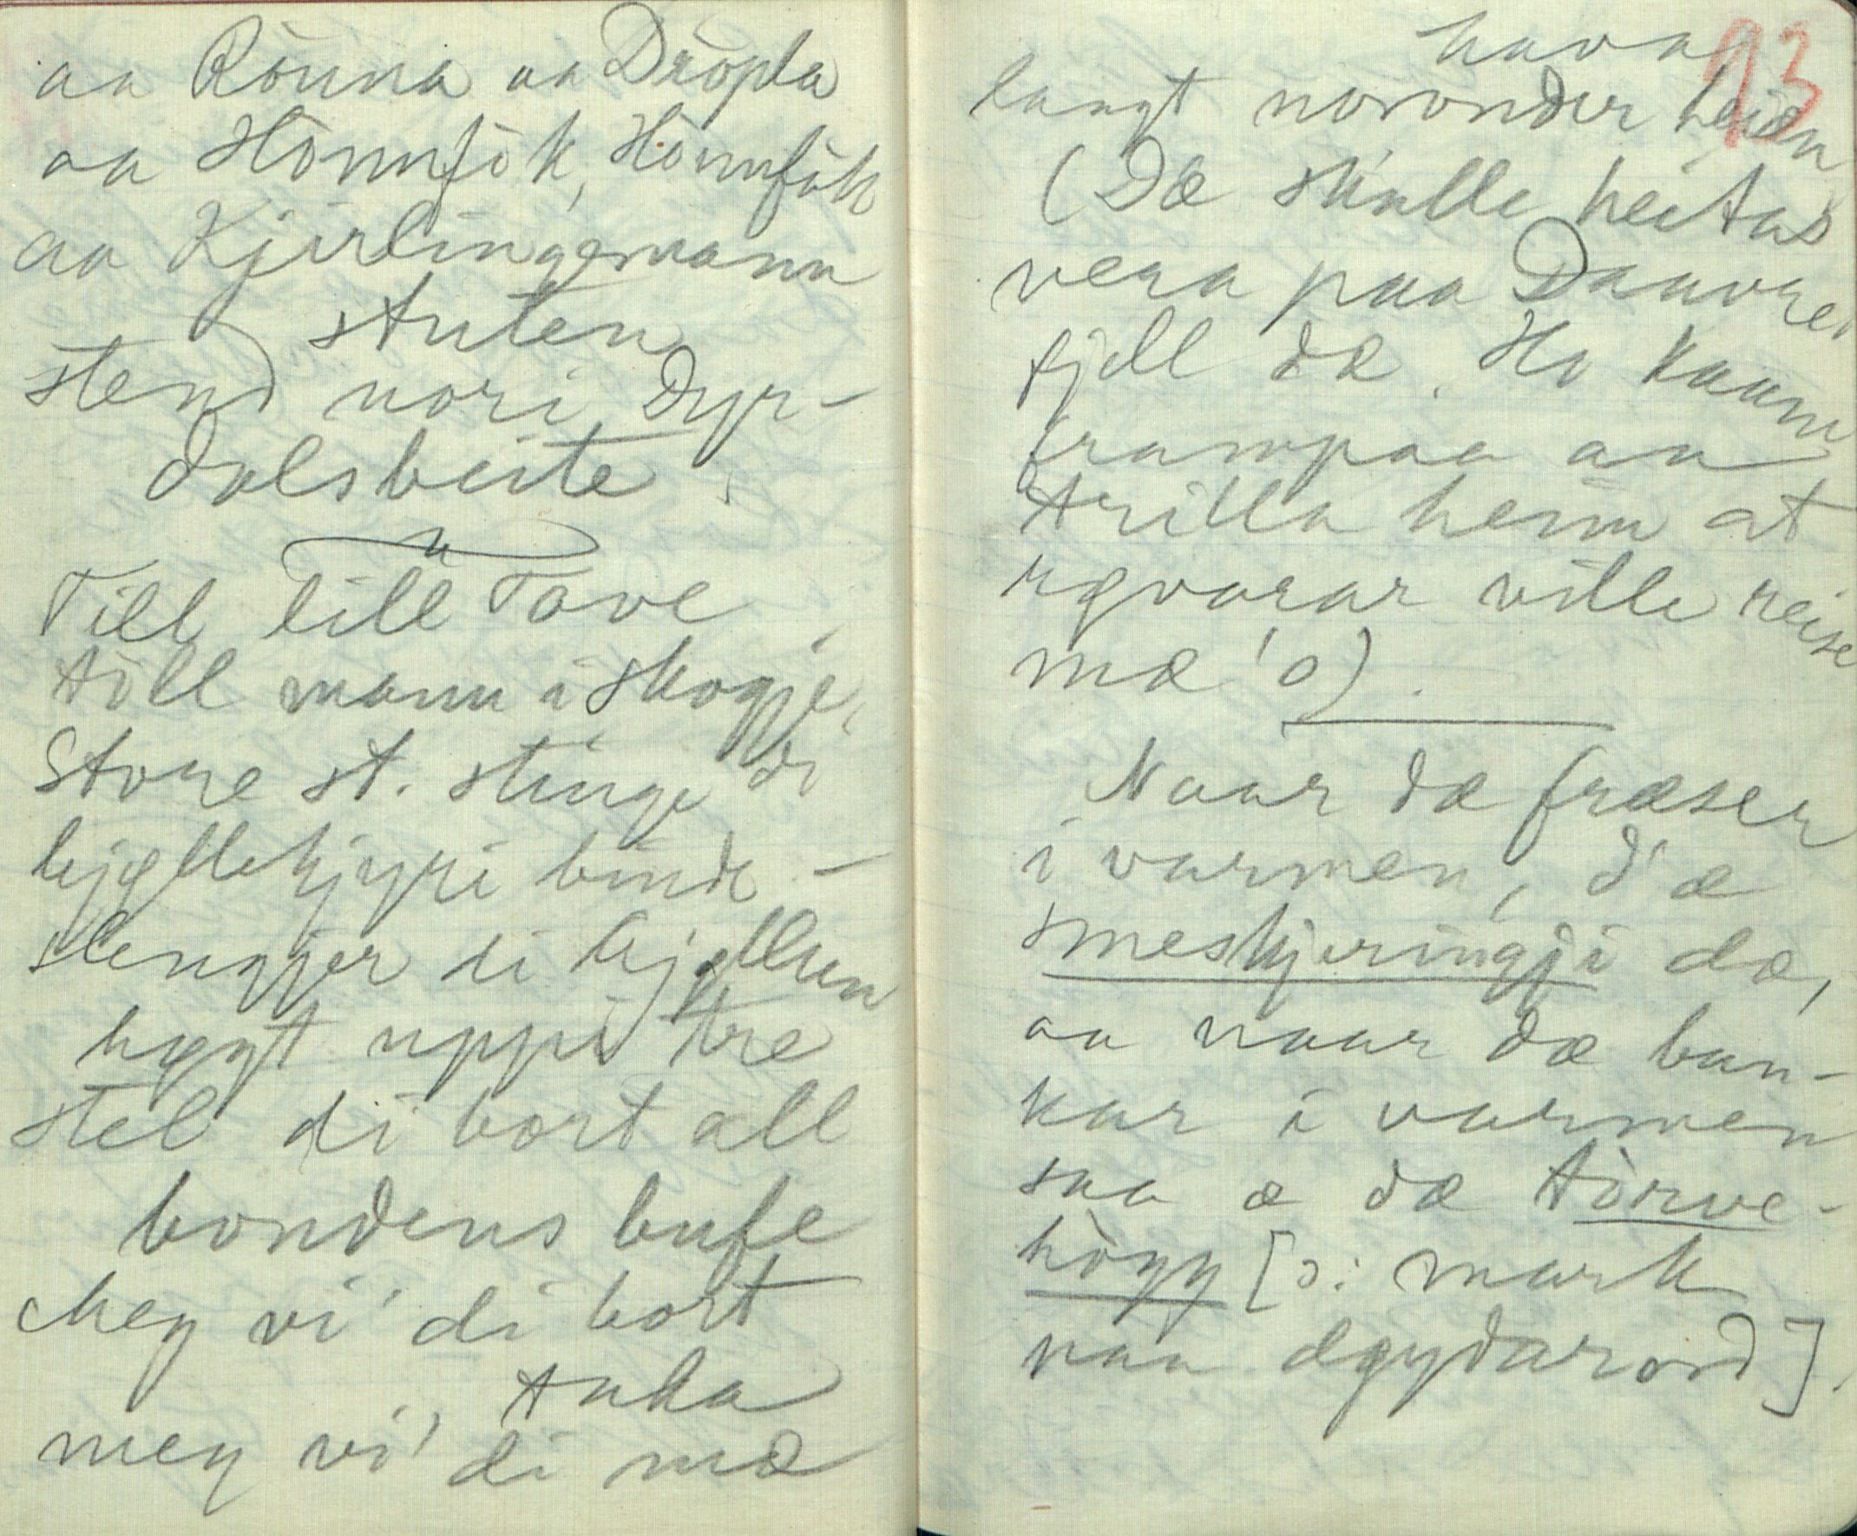 aa Rònna aa Dròpla
aa Hònnfòk, Hònnfòk
aa Kjerlingemann
stuten
stend nori Dyr-
dalsbeite.
Till lill Tove
tòll mann i skogje,
Store st. stinge di
bjøllekjyri binde -
slengjer di bjøllun
høgt uppi tre
stel di bort all
bondens bufe
meg vi' di bort
taka
meg vi' di mæ
hava
93
langt noronder heiæn
(Dæ skulle heitas
vera paa Daavre-
fjell dæ. Ho kaam
frampaa aa
trilla heim at
rgvarar ville reise
mæ 'o).
Naar dæ fræser
i varmen, d'æ
smeskjeringji dæ,
aa naar dæ ban-
kar i varmen
saa æ dæ tòrve-
hògg [ɔ: mark
naa ægydarord].